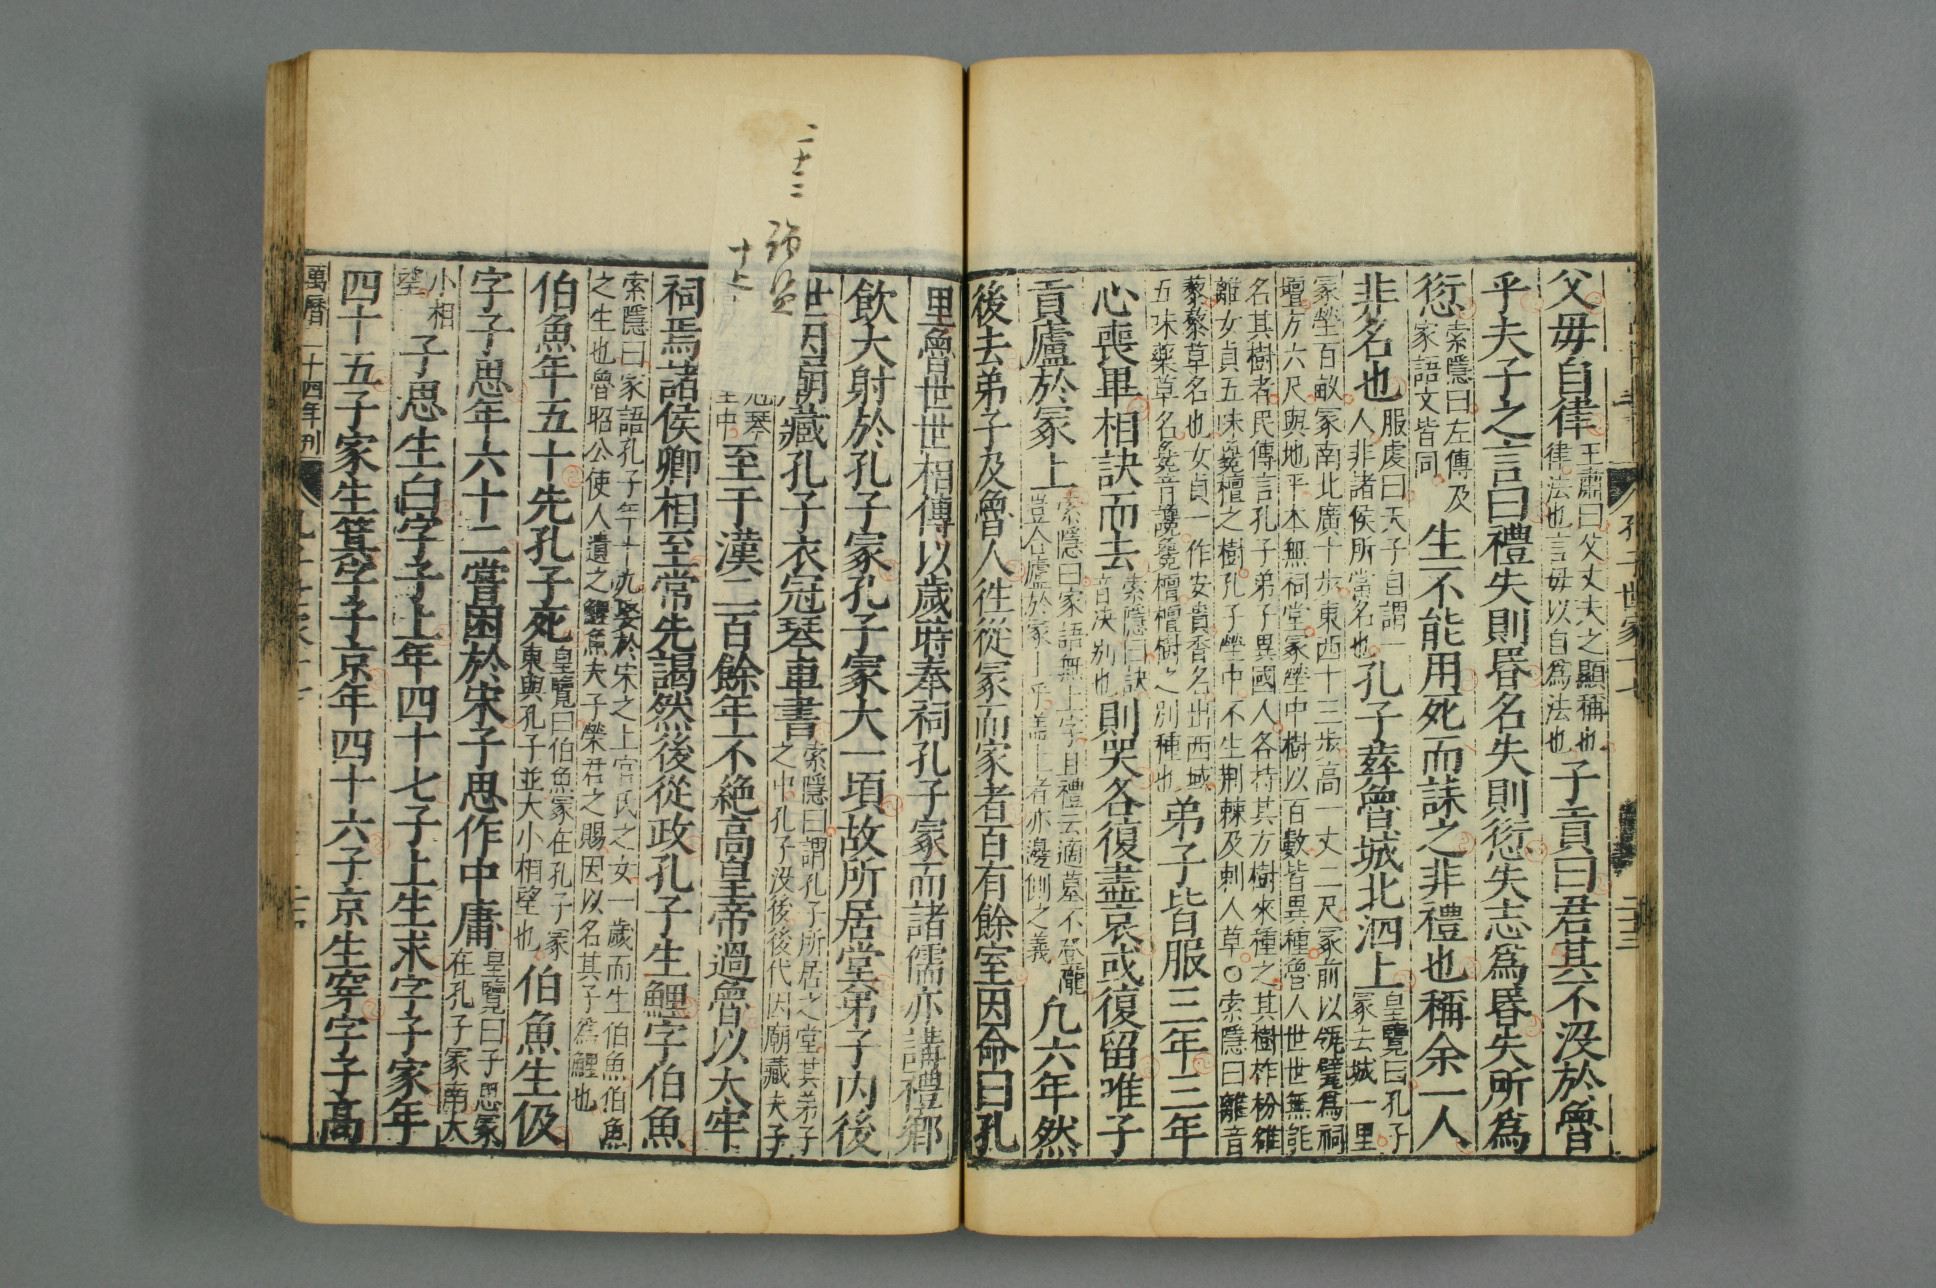 父毋自律王肅曰父丈夫之顯稱也
律法也言毋以自爲法也子貢曰君其不没於魯
乎夫子之言曰禮失則昬名失則愆失志爲昬失所爲
愆索隱曰左傳及
家語文皆同生不能用死而誄之非禮也稱余一人
非名也服虔曰天子自謂一
人非諸侯所當名也孔子葬魯城北泗上皇覽曰孔子
冢去城一里
冢塋百畝冢南北廣十步東西十三步高一丈二尺冢前以瓴甓爲祠
壇方六尺與地平本無祠堂冢塋中樹以百數皆異種魯人世世無能
名其樹者民傳言孔子弟子異國人各持其方樹來種之其樹柞枌雒
離女貞五味毚檀之樹孔子塋中不生荆棘及刺人草○索隱曰離音
藜藜草名也女貞一作安貴香名出西域
五味藥草名毚音讒毚檀檀樹之别種也弟子皆服三年三年
心喪畢相訣而去索隱曰訣
音決别也則哭各復盡哀或復留唯子
貢廬於冢上索隱曰家語無上字且禮云適墓不登隴
豈合廬於冢上乎蓋上者亦邊側之義凡六年然
後去弟子及魯人徃從冢而家者百有餘室因命曰孔
里魯世世相傳以歲時奉祠孔子冢而諸儒亦講禮鄉
飲大射於孔子冢孔子冢大一頃故所居堂弟子内後
世因廟藏孔子衣冠琴車書索隱曰謂孔子所居之堂其弟子
之中孔子没後後代因廟藏夫子
冠琴
至于漢二百餘年不絶高皇帝過魯以太牢
祠焉諸侯卿相至常先謁然後從政孔子生鯉字伯魚
索隱曰家語孔子年十九娶於宋之上官氏之女一歲而生伯魚伯魚
之生也魯昭公使人遺之鯉魚夫子榮君之賜因以名其子爲鯉也
伯魚年五十先孔子死皇覽曰伯魚冢在孔子冢
東與孔子並大小相望也伯魚生伋
字子思年六十二嘗困於宋子思作中庸皇覽曰子思冢
在孔子冢南大
小相
望子思生白字子上年四十七子上生求字子家年
四十五子家生箕字子京年四十六子京生穿字子高
孔子世家十七
二十三